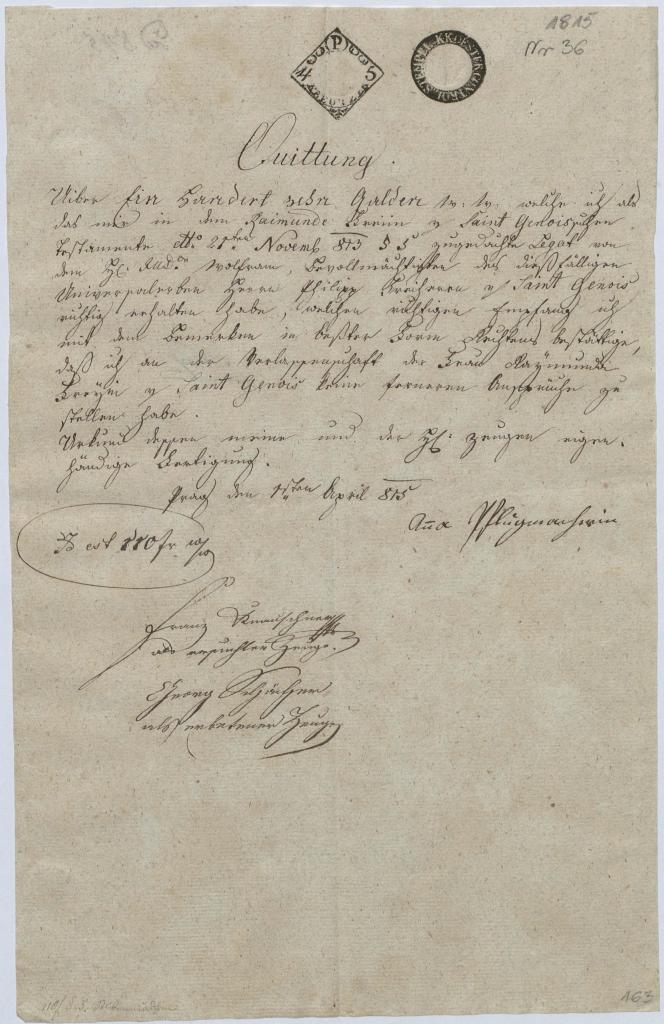 1815
Nr 36
P
45
KREUTZER
K.K. OESTER. CONTROL STEMPEL
Quittung.
Uiber Ein Hundert zehn Gulden W: W: welche ich als
das mir in dem Raimunde Freiin v Saint Genoisischen
Testamente dto 21ten Novemb 813 § 5 zugedachte Legat von
dem H: Wolfram, Bevollmächtigten des dießfälligen
Universalerben Herrn Philipp Freiherrn v Saint Genois
richtig erhalten habe, welchen richtigen Empfang ich
mit dem Bemerken in bester Form Rechtens bestättige,
daß ich an der Verlassenschaft der Frau Raymunde
Freyin v Saint Genois keine ferneren Ansprüche zu
stellen habe.
Urkund dessen meine und der H: Zeugen eigen-
händige Fertigung.
Prag den 1sten April 815
Anna Pflugmacherin
est 110 fr
Franz
als ersuchter Zeuge.
Georg
als erbetener Zeuge
163